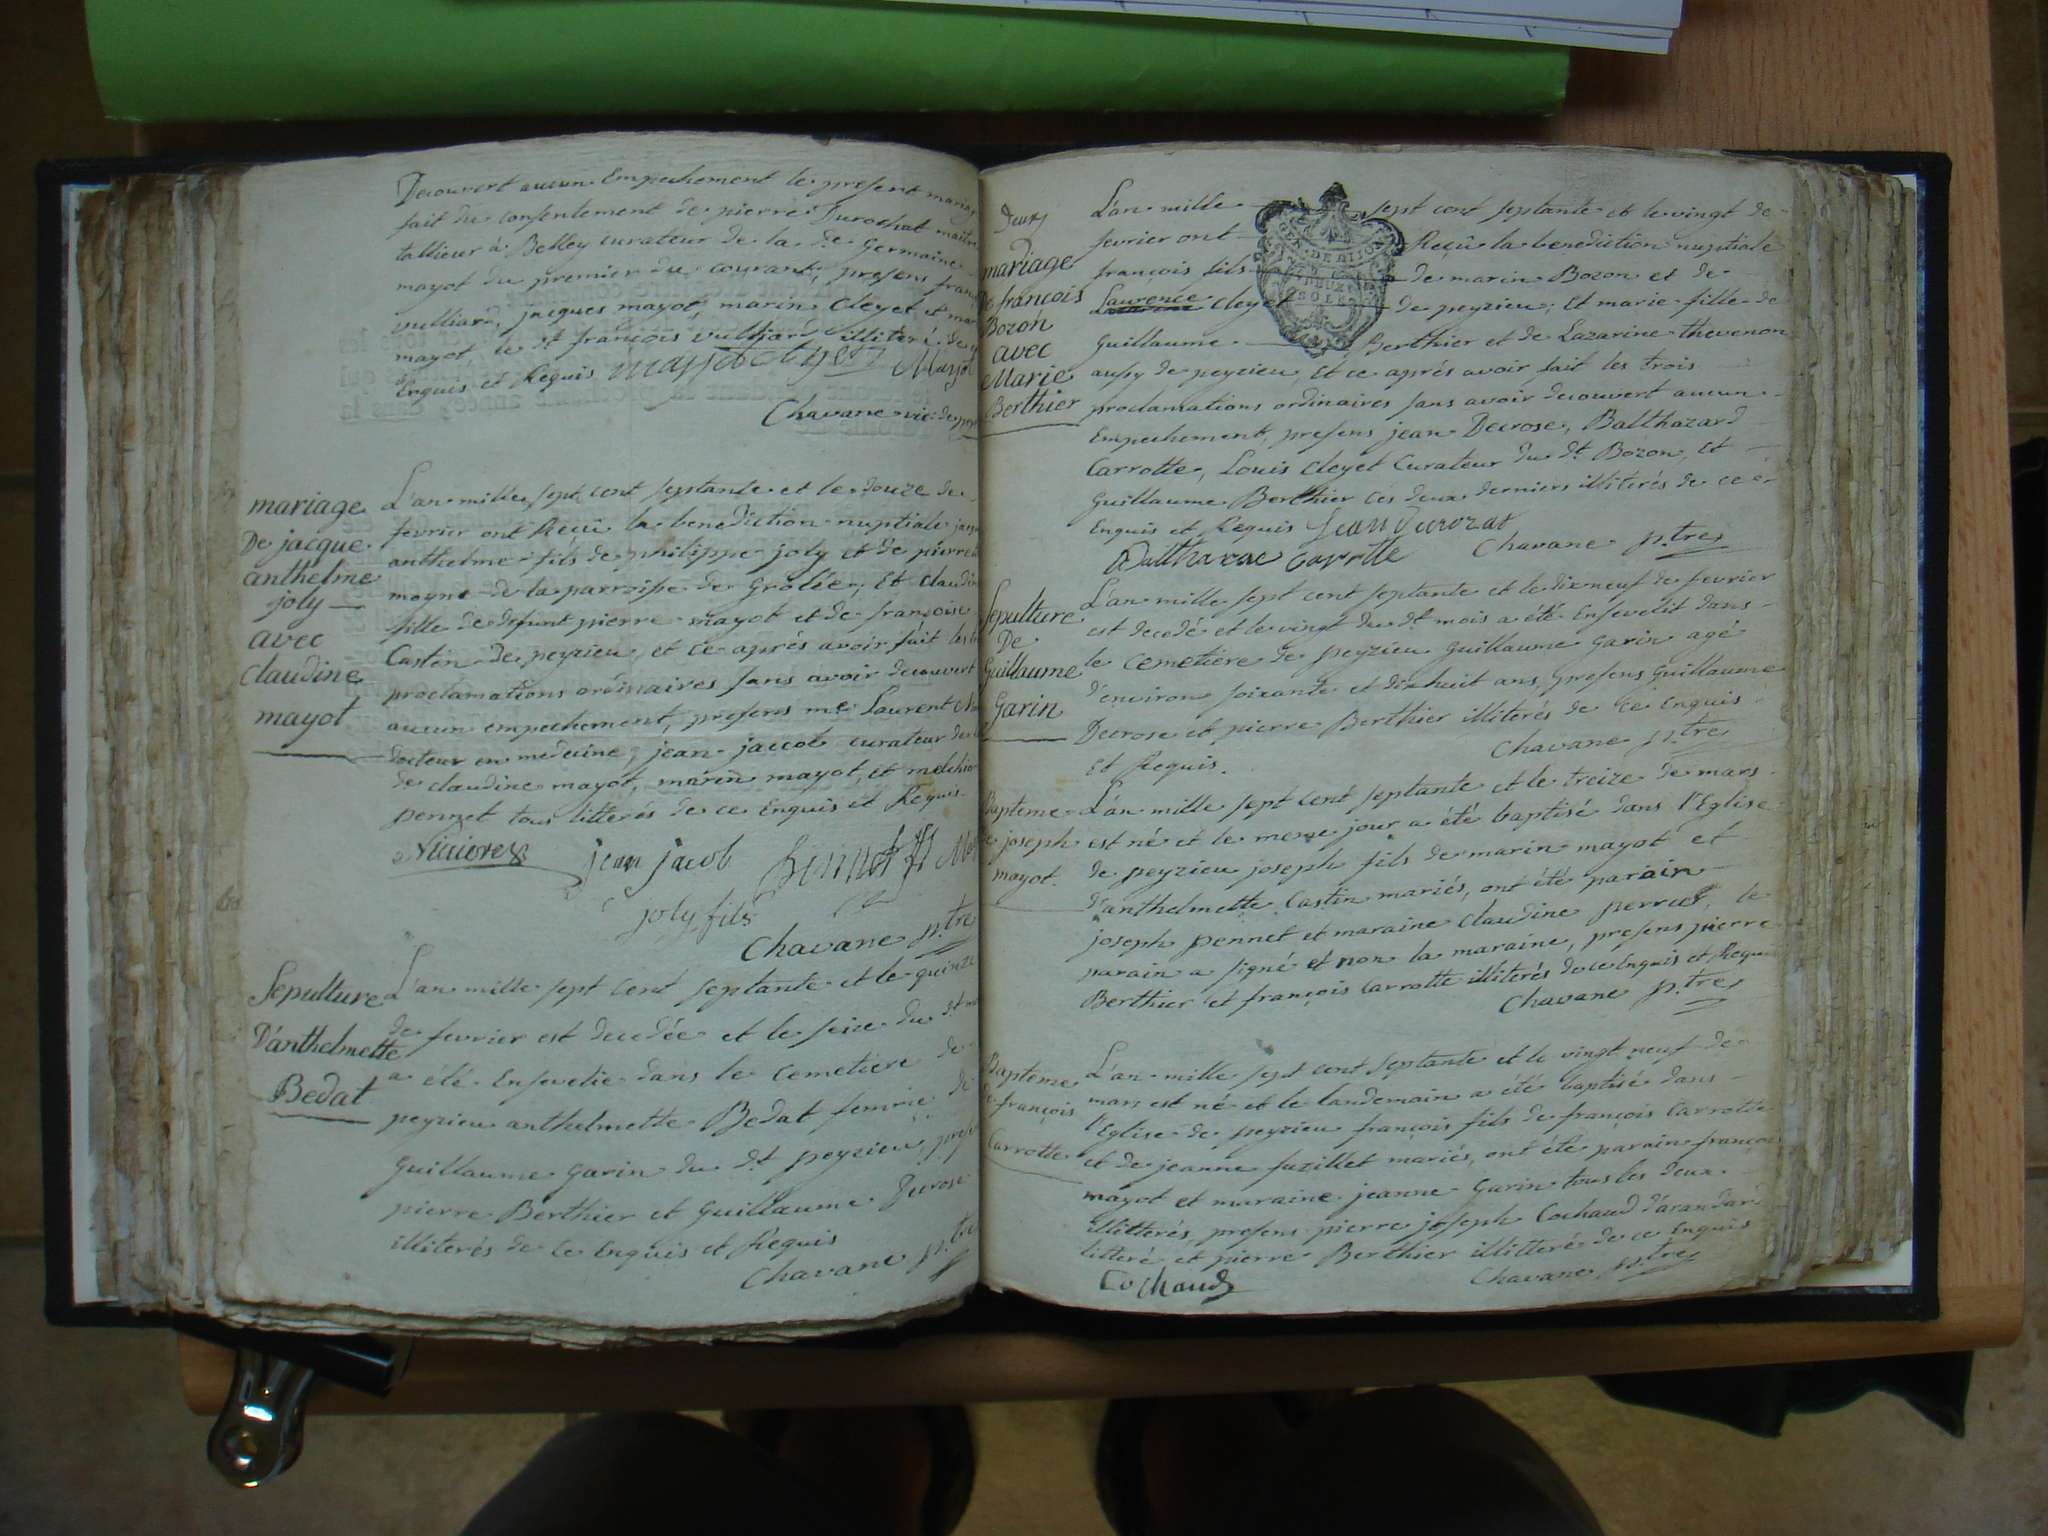 Decouvert aucun Empechement le present mariage
fait du consentement de pierre Durochat maitre
tallieur à Belley curateur de la de germaine
mayot du premier du courant, presens
vulliard, jacques mayot, marin Cleyet et
mayot le dt françois vulliard illiteré de
Enquis et Requis mayot Cleyet Mayot
Chavane vic: de
mariage
De jacque
anthelme
joly
avec
claudine
mayot
L'an mille sept cent septante et le douze de
fevrier ont Reçû la benediction nuptiale
anthelme fils de philippe joly et de pierrette
moyne de la parroisse de Grolée; Et Claudine
fille de defunt pierre mayot et de françoise
Castin de peyzieu, et ce aprés avoir fait les
proclamations ordinaires sans avoir decouvert
aucun empechement, presens me Laurent
docteur en medecine, jean jaccob curateur de
de claudine mayot, marin mayot, et melchior
pennet tous litterés de ce Enquis et Requis
jean jacob
joly fils
Chavane p.tre
Sepulture
D'anthelmette
Bedat
L'an mille sept cent septante et le quinze
de fevrier est decedée et le seize du dt
a été Ensevelie dans le Cemetiere de
peyzieu anthelmette Bedat femme de
Guillaume Garin du dt peyzieu,
pierre Berthier et Guillaume Decrose
illiterés de ce Enquis et Requis
Chavane p.tre
mariage
De françois
Bozon
avec
Marie
Berthier
L'an mille sept cent septante et le vingt de
fevrier ont Reçû la benediction nuptiale
françois fils de marin Bozon et de
Laurence Cleyet de peyzieu; Et marie fille de
Guillaume Berthier et de Lazarine thevenon
aussy de peyzieu, Et ce aprés avoir fait les trois
proclamations ordinaires sans avoir decouvert aucun
Empechement, presens jean Decrose, Balthazard
Carrotte, Louis Cleyet Curateur du dt Bozon, Et
Guillaume Berthier ces deux derniers illiterés de ce
Enquis et Requis Jean Decrozat
Balthazac Carrotte Chavane p.tre
GEN. DE DIJON
DEUX
SOLS
Sepulture
De
Guillaume
Garin
L'an mille sept cent septante et le dix neuf de fevrier
est decedé et le vingt du dt mois a été Ensevelit dans
le cemetiére de peyzieu Guillaume Garin agé
d'environ soixante et dixhuit ans, presens Guillaume
Decrose et pierre Berthier illiterés de ce Enquis
Et Requis. Chavane p.tre
Bapteme
de joseph
mayot.
L'an mille sept cent septante et le treize de mars
est né et le meme jour a été baptisé dans l'Eglise
de peyzieu joseph fils de marin mayot et
d'anthelmette Castin mariés, ont été parain
joseph pennet et maraine claudine perret, le
parain a signé et non la maraine, presens pierre
Berthier et françois Carrotte illiterés de ce Enquis et Requis
Chavane p.tre
Bapteme
de françois
Carrotte
L'an mille sept cent septante et le vingt neuf de
mars est né et le landemain a été baptisé dans
l'Eglise de peyzieu françois fils de françois Carrotte
et de jeanne fuzillet mariés, ont été parain françois
mayot et maraine jeanne Garin tous les deux
illitterés, presens pierre joseph Cochaud d'arandar
litteré et pierre Berthier illitteré de ce Enquis
Cochaud Chavane p.tre